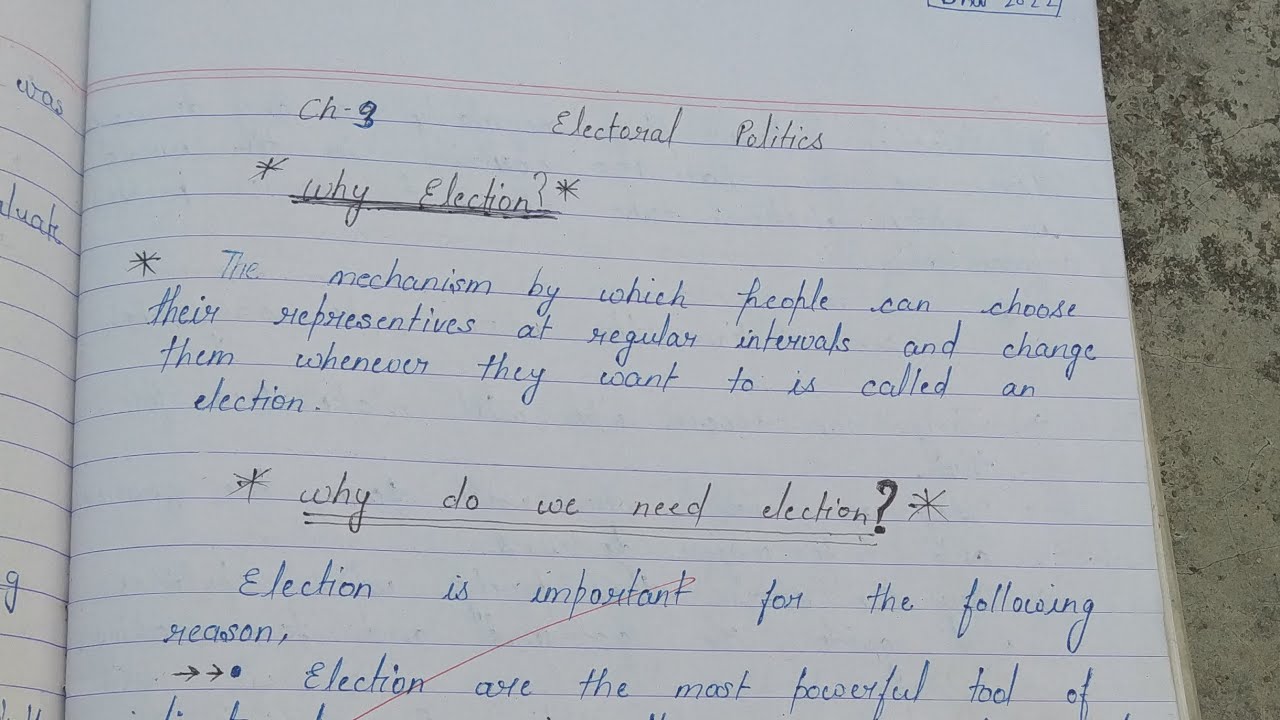 2022
was
Ch-3 Electoral Politics
* Why Election? *
* The mechanism by which people can choose
their representives at regular intervals and change
them whenever they want to is called an
election.
* why do we need election? *
Election is important for the following
reason,
→→• Election are the most powerful tool of
g